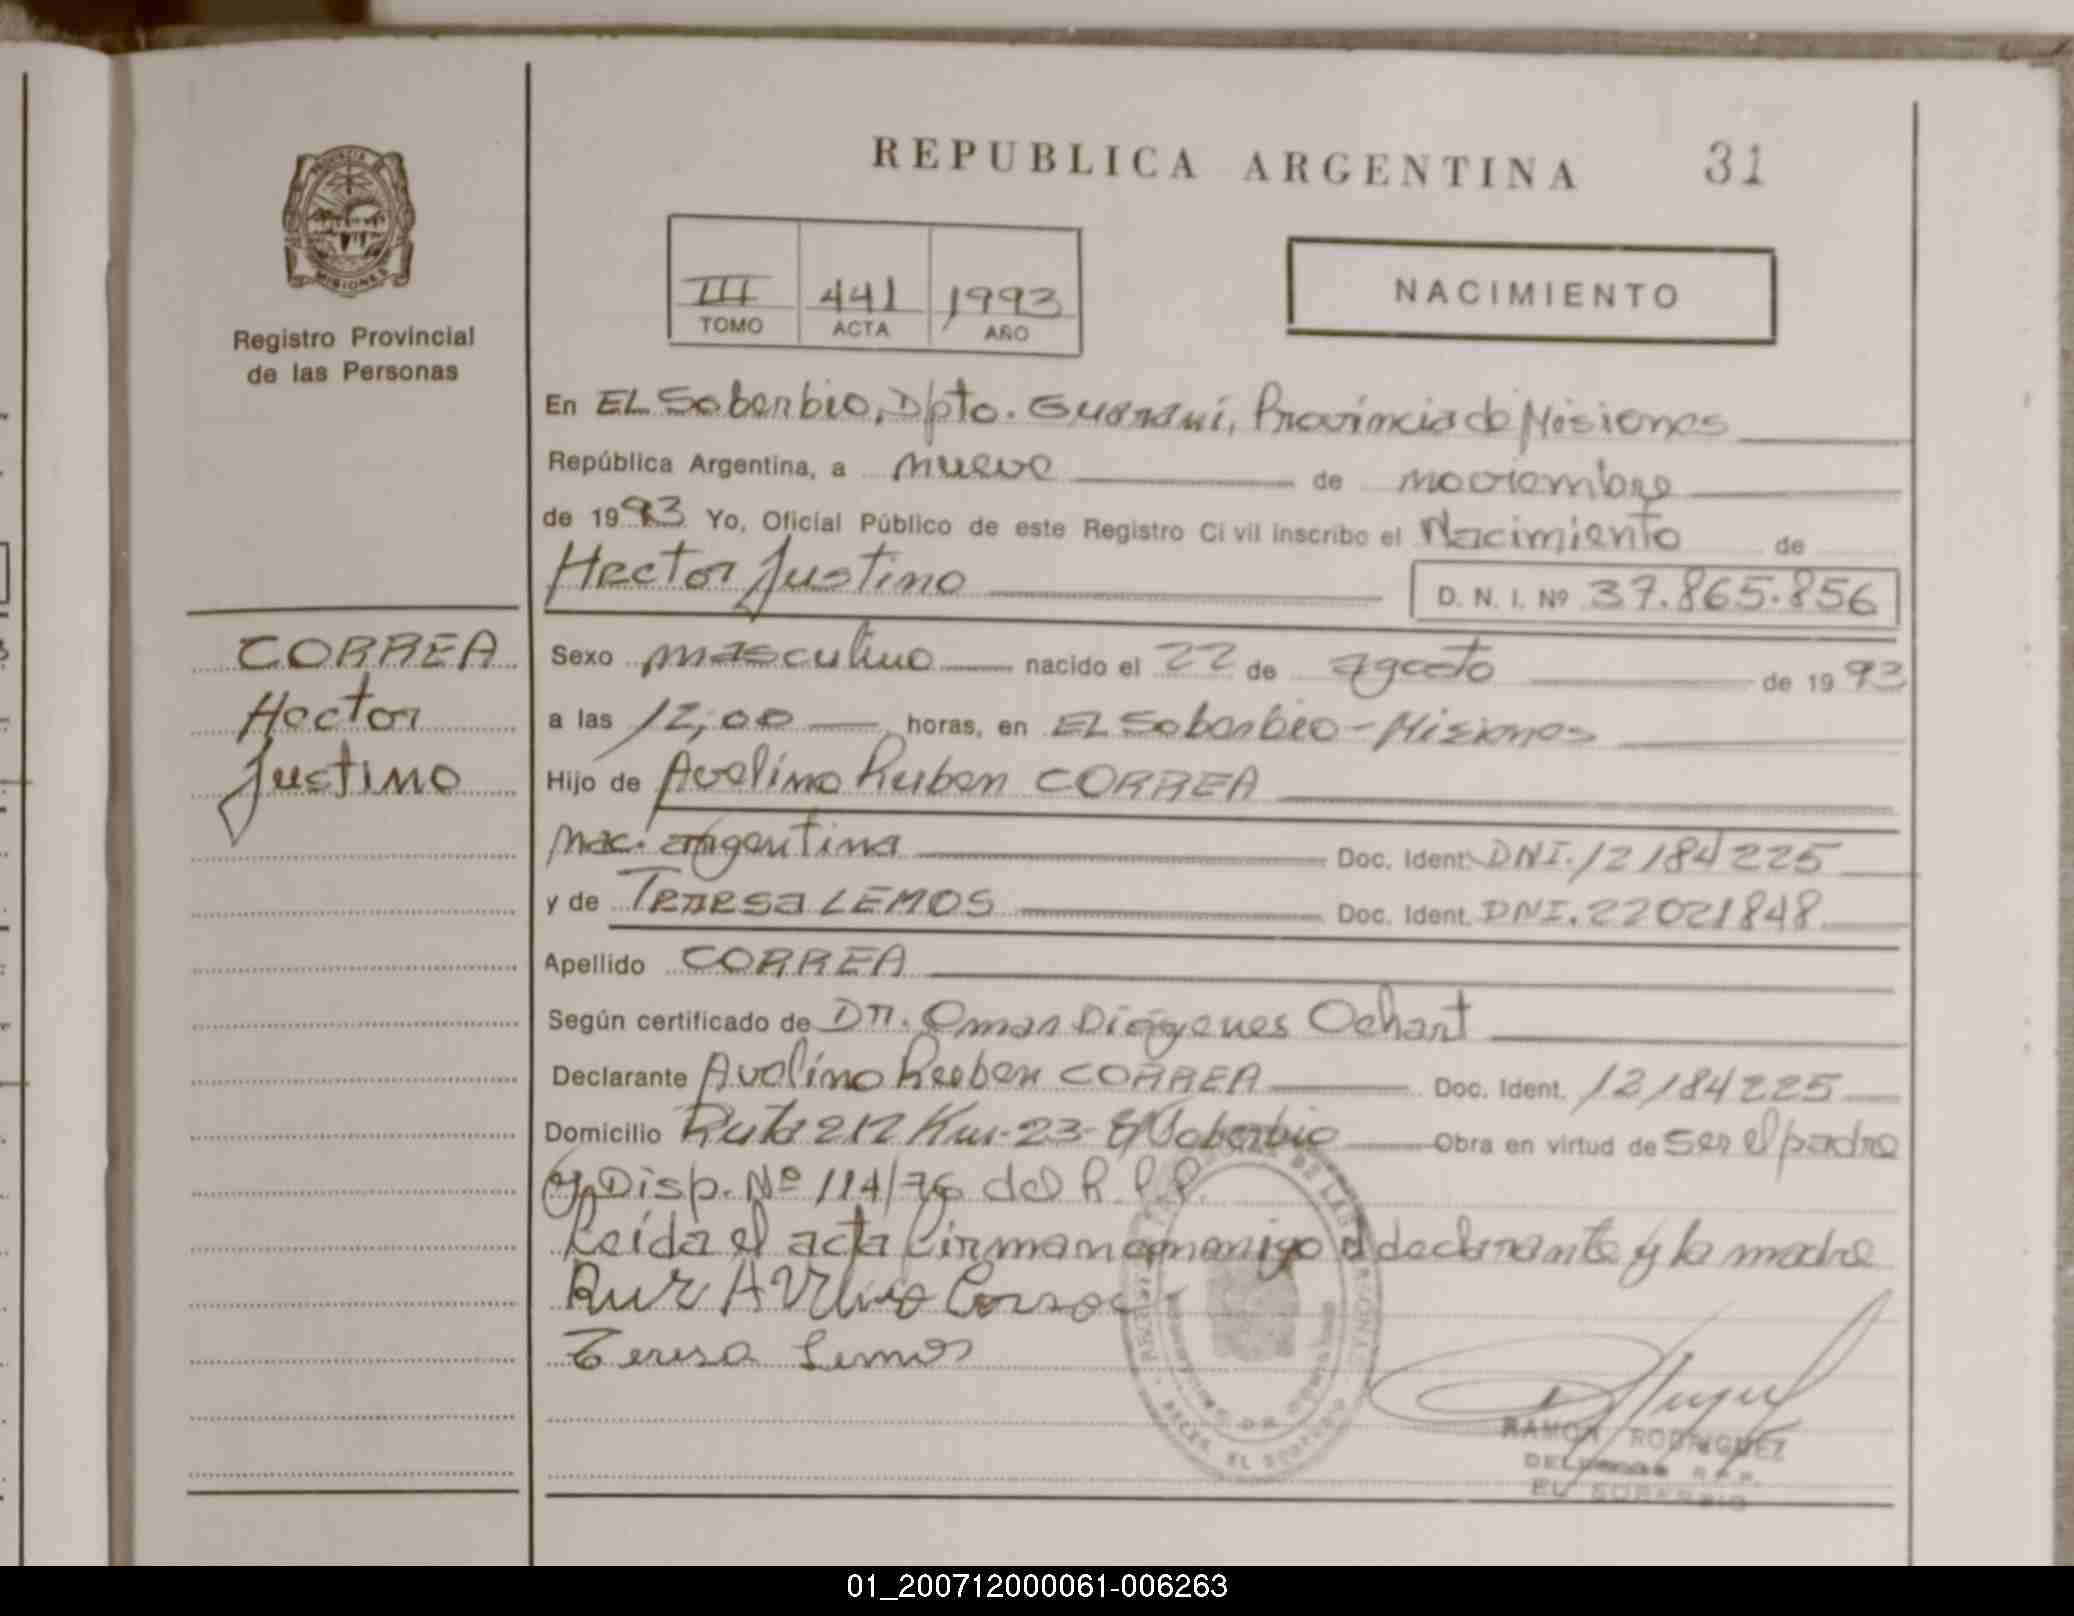 REPUBLICA ARGENTINA 31
PROVINCIA DE
MISIONES
Registro Provincial
de las Personas
III 441 1993
TOMO ACTA AÑO
NACIMIENTO
En EL Soberbio, Dpto. Guaraní, Provincia de Misiones
República Argentina, a nueve de noviembre
de 1993 Yo, Oficial Público de este Registro Civil inscribo el Nacimiento de
Hector Justino D. N. I. Nº 37.865.856
CORREA
Hector
Justino
Sexo masculino nacido el 22 de agosto de 1993
a las 12,00 horas, en EL Soberbio - Misiones
Hijo de Avelino Ruben CORREA
nac. argentina Doc. Ident. DNI. 12184225
y de Teresa LEMOS Doc. Ident. DNI. 22021848
Apellido CORREA
Según certificado de Dr. Omar Diógenes Ochart
Declarante Avelino Ruben CORREA Doc. Ident. 12184225
Domicilio Ruta 212 Km-23- El Soberbio Obra en virtud de ser el padre
y Disp. Nº 114/76 del R.P.P.
Leída el acta firman conmigo el declarante y la madre
Teresa Lemos
RAMON RODRIGUEZ
R.P.P.
EL SOBERBIO
01_200712000061-006263